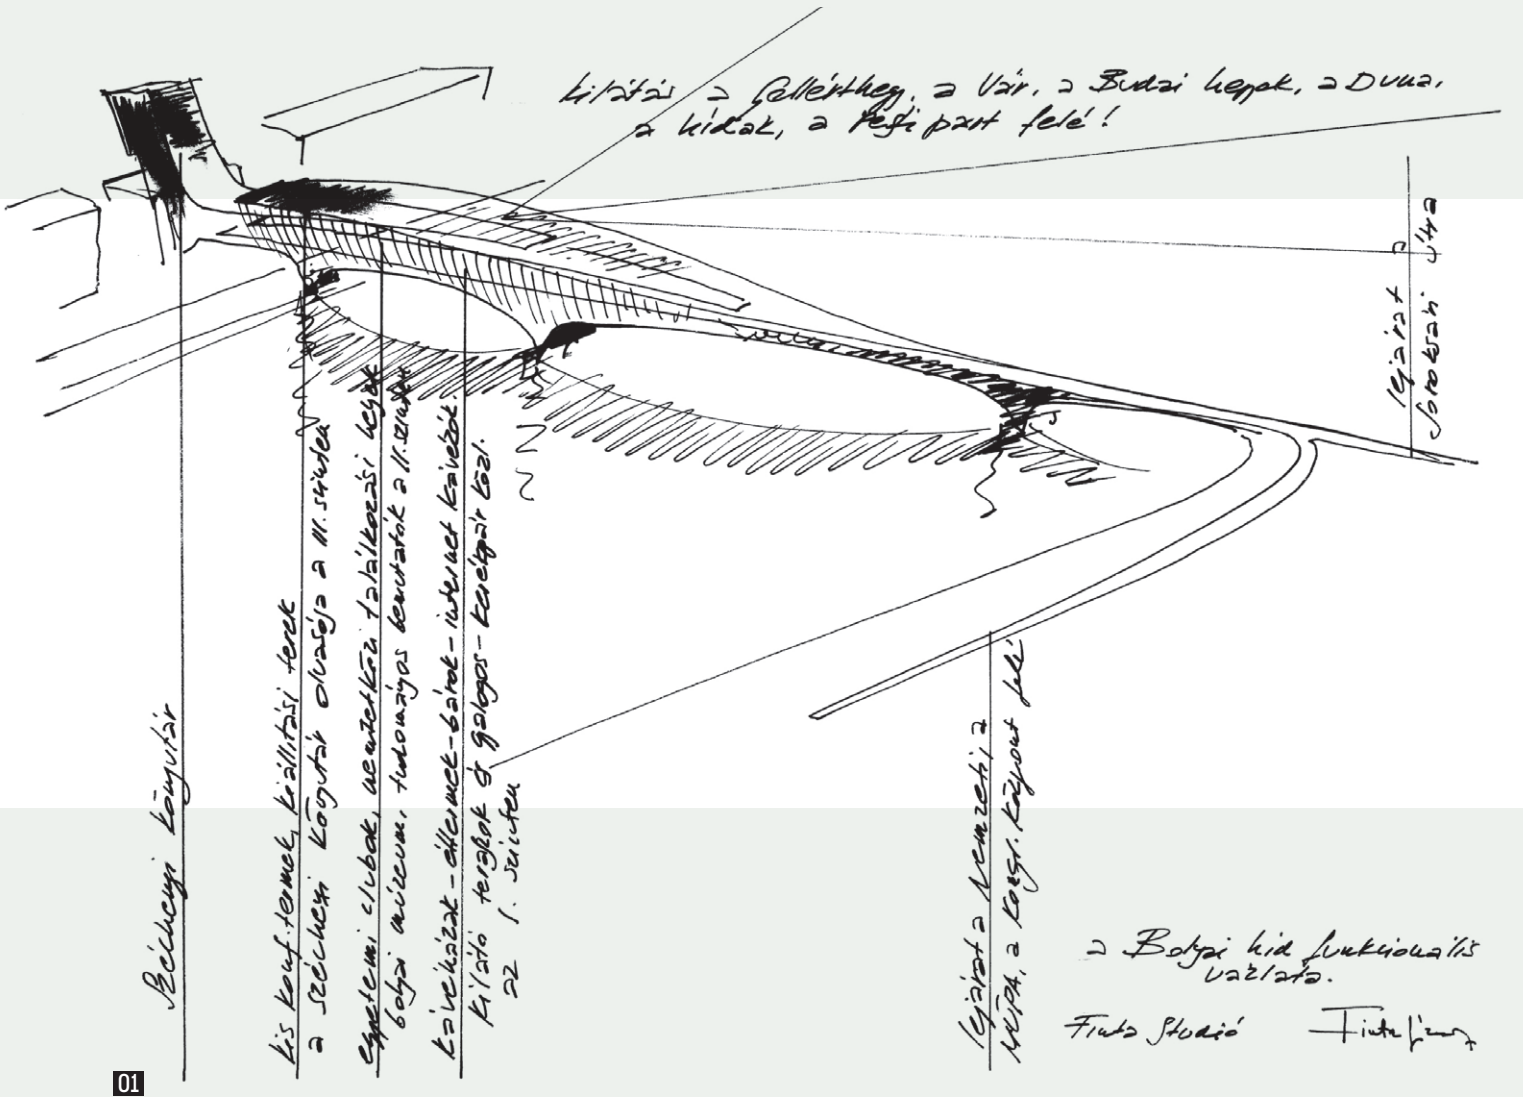 kilátás a Gellérthegy, a Vár, a Budai hegyek, a Duna,
a hidak, a Pesti part felé!
lejárat
Soroksári útra
Széchenyi könyvtár
kis konf. termek, kiállítási terek
a Széchenyi Könyvtár olvasója a III. szinten
egyetemi clubok, nemzetközi találkozási helyek
bolyai múzeum, tudományos bemutatók a II. szinten
kávéházak - éttermek - bárok - internet kávézók.
kilátó teraszok és gyalogos - kerékpár közl.
az I. szinten
lejárat a Nemzeti, a
MÜPA, a Kongr. Központ felé
a Bolyai híd funkcionális
vázlata.
Finta Studió
Finta József
01